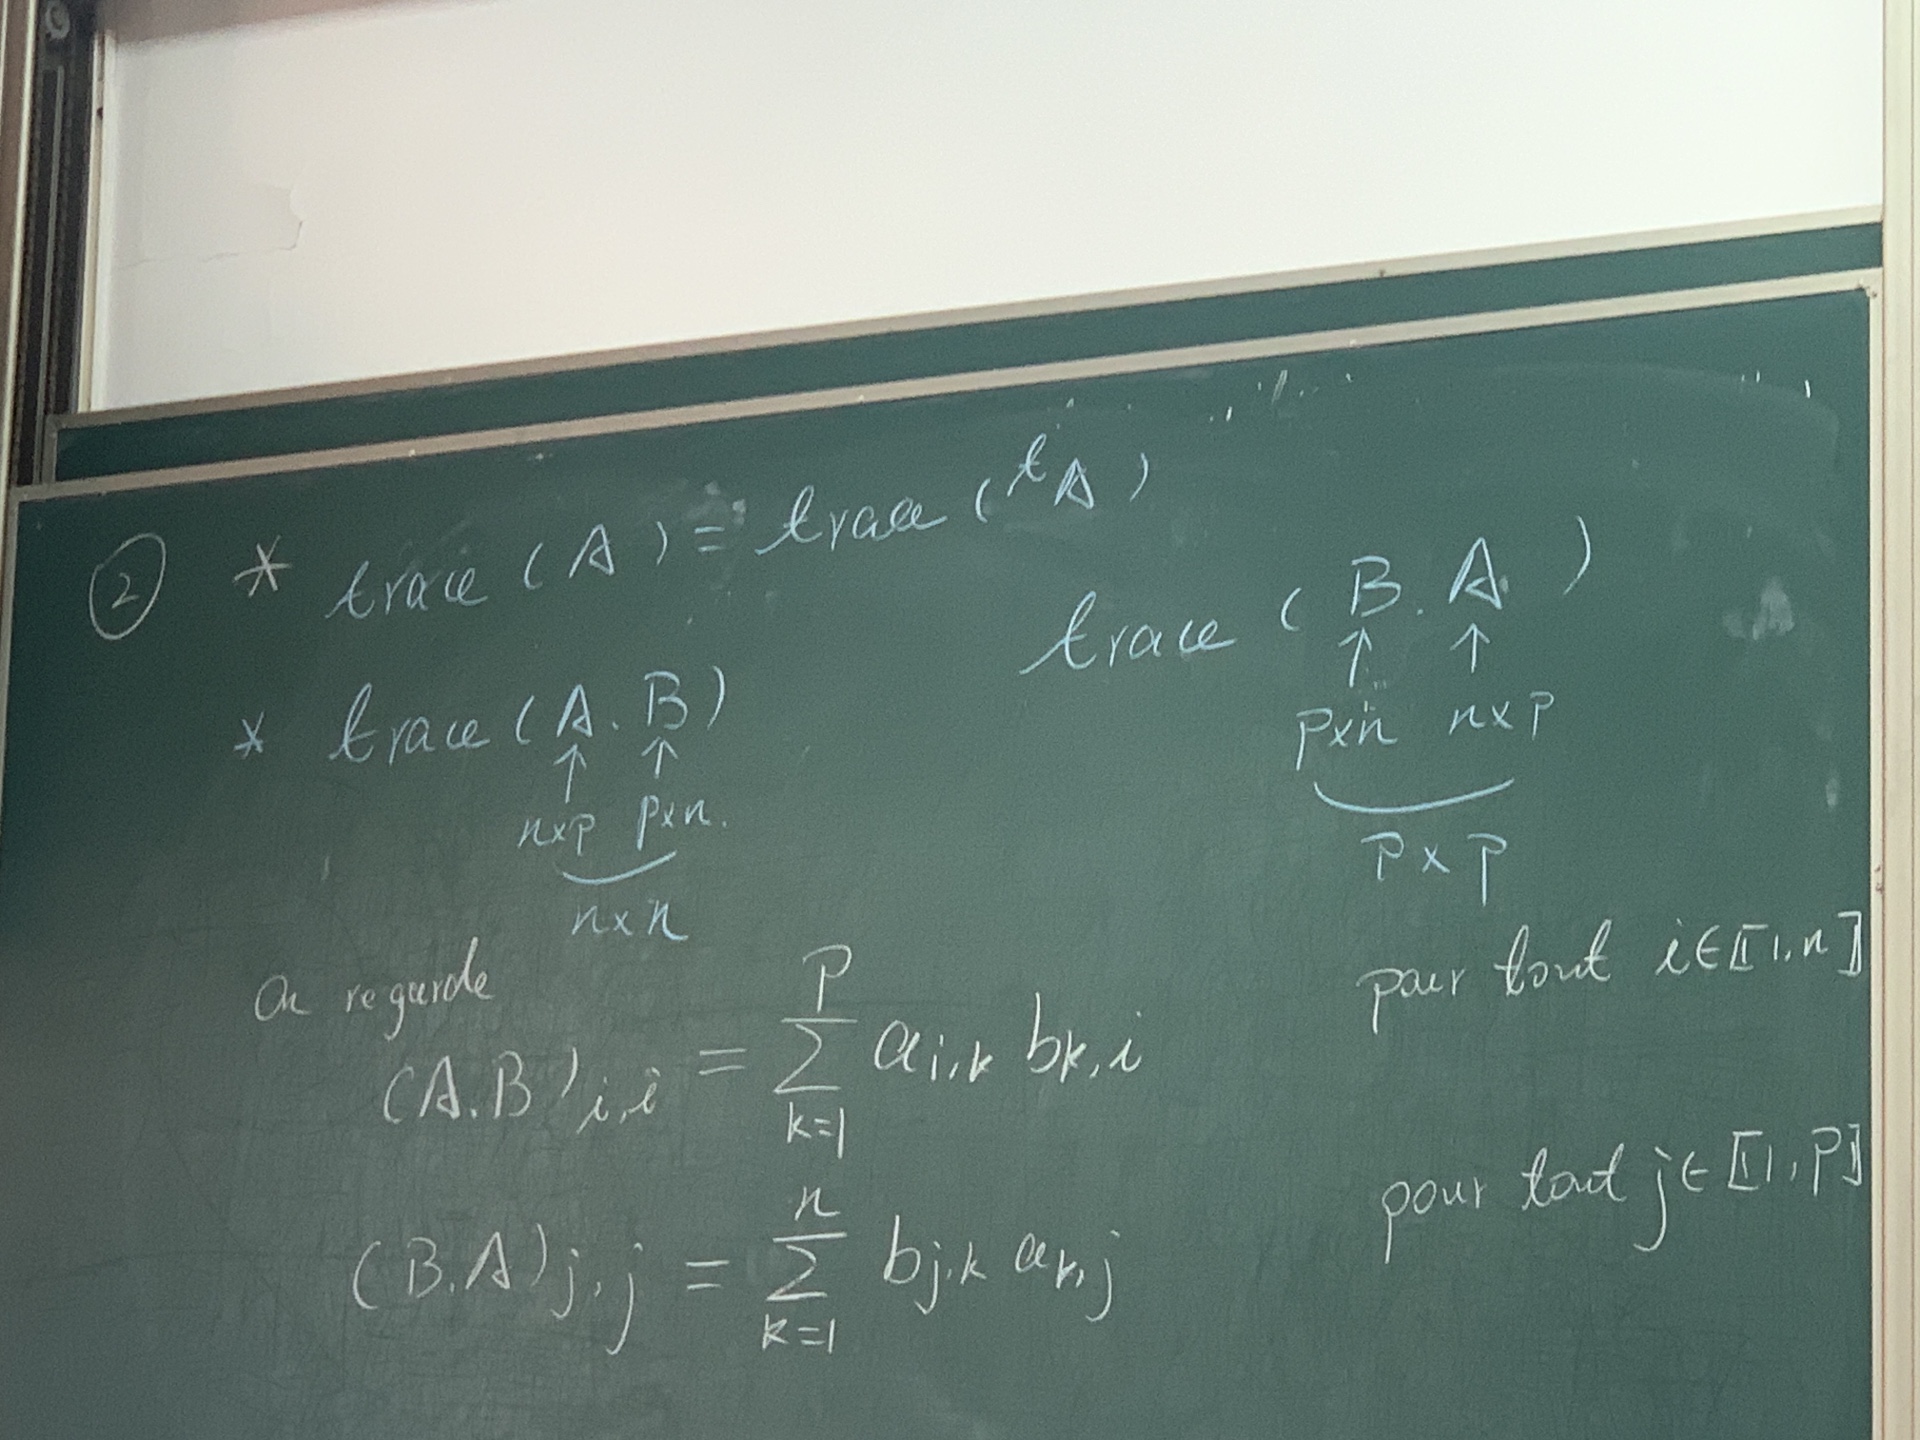 ② * trace (A) = trace (ᵗA)
* trace (A.B)
↑ ↑
n×p p×n.
n×n
trace (B.A)
↑ ↑
p×n n×p
p×p
On regarde
(A.B)i,i = ∑ₖ₌₁ᵖ ai,k bk,i pour tout i∈⟦1,n⟧
(B.A)j,j = ∑ₖ₌₁ⁿ bj,k ak,j pour tout j∈⟦1,p⟧